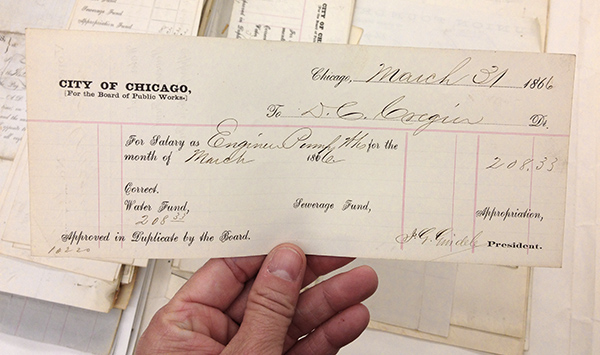 Sewerage Fund
Appropriation Fund
CITY OF CHICAGO,
(For the Board of Public Works.)
Chicago, March 31 1866
To D. C. Cregier Dr.
For Salary as Engineer Pump Wks for the
month of March 1866
208.33
Correct.
Water Fund, Sewerage Fund, Appropriation,
208 33
Approved in Duplicate by the Board. J. G. Gindele President.
10220